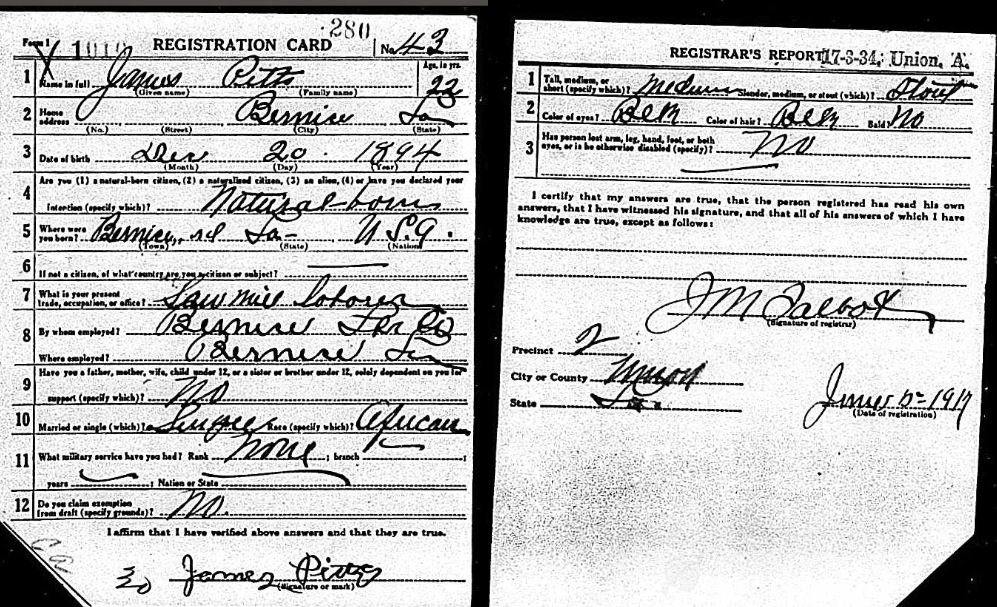 Form 1 1010 REGISTRATION CARD 280 No. 43
1 Name in full James Pitts Age, in yrs. 22
(Given name) (Family name)
2 Home address Bernice La
(No.) (Street) (City) (State)
3 Date of birth Dec 20 1894
(Month) (Day) (Year)
4 Are you (1) a natural-born citizen, (2) a naturalized citizen, (3) an alien, (4) or have you declared your
intention (specify which)? Natural-born
5 Where were you born? Bernice La- U S A.
(Town) (State) (Nation)
6 If not a citizen, of what country are you a citizen or subject?
7 What is your present trade, occupation, or office? Saw mill laborer
8 By whom employed? Bernice Lbr Co
Where employed? Bernice La
9 Have you a father, mother, wife, child under 12, or a sister or brother under 12, solely dependent on you for
support (specify which)? No
10 Married or single (which)? Single Race (specify which)? African
11 What military service have you had? Rank None ; branch ;
years ; Nation or State
12 Do you claim exemption from draft (specify grounds)? No.
I affirm that I have verified above answers and that they are true.
James Pitts
(Signature or mark)
REGISTRAR'S REPORT 17-3-34; Union, A.
1 Tall, medium, or short (specify which)? Medium Slender, medium, or stout (which)? Stout
2 Color of eyes? Blk Color of hair? Blk Bald? No
3 Has person lost arm, leg, hand, foot, or both eyes, or is he otherwise disabled (specify)? No
I certify that my answers are true, that the person registered has read his own
answers, that I have witnessed his signature, and that all of his answers of which I have
knowledge are true, except as follows:
J M Talbot
(Signature of registrar)
Precinct 2
City or County Union
State La.
June 5= 1917
(Date of registration)